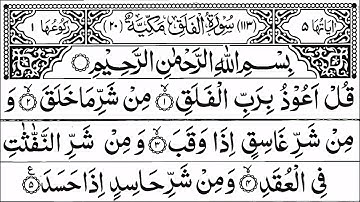 اٰيَاتُهَا ٥ (١١٣) سُوْرَةُ الْفَلَقِ مَكِّيَّةٌ (٢٠) رُكُوْعُهَا ١
بِسْمِ اللهِ الرَّحْمٰنِ الرَّحِيْمِ
قُلْ اَعُوْذُ بِرَبِّ الْفَلَقِ ۙ﴿١﴾ مِنْ شَرِّ مَا خَلَقَ ۙ﴿٢﴾ وَ
مِنْ شَرِّ غَاسِقٍ اِذَا وَقَبَ ۙ﴿٣﴾ وَمِنْ شَرِّ النَّفّٰثٰتِ
فِي الْعُقَدِ ۙ﴿٤﴾ وَمِنْ شَرِّ حَاسِدٍ اِذَا حَسَدَ ﴿٥﴾ ع